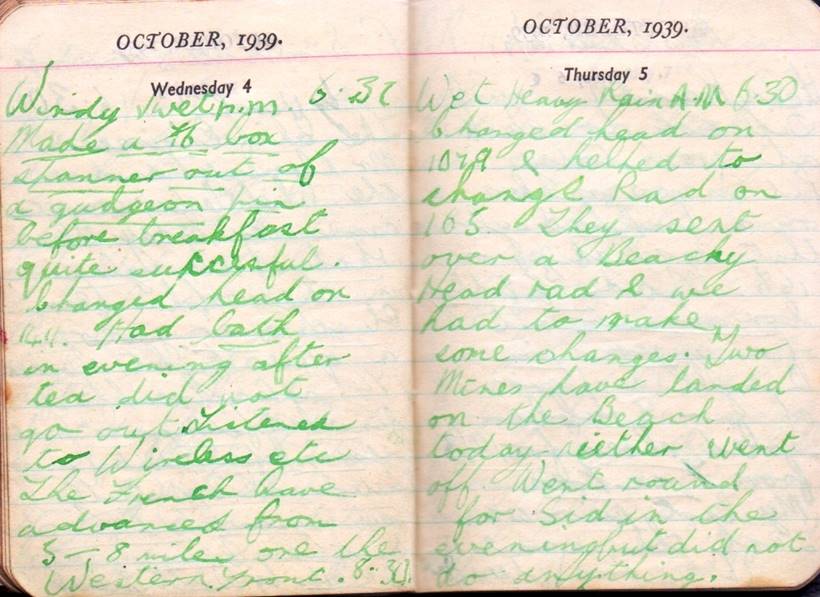 OCTOBER, 1939.
Wednesday 4
Windy & wet p.m.
Made a 7/16 box
spanner out of
a gudgeon pin
before breakfast
quite successful.
Changed head on
Had bath
in evening after
tea did not
go out Listened
to Wireless etc
The French have
advanced from
5 – 8 miles one the
Western Front. 8.30.
OCTOBER, 1939.
Thursday 5
Wet Heavy Rain A.M 6.30
Changed head on
1079 & helped to
change Rad on
105. They sent
over a Beachy
Head rad & we
had to make
some changes. Two
Mines have landed
on the Beach
today neither went
off. Went round
for Sid in the
evening but did not
do anything.